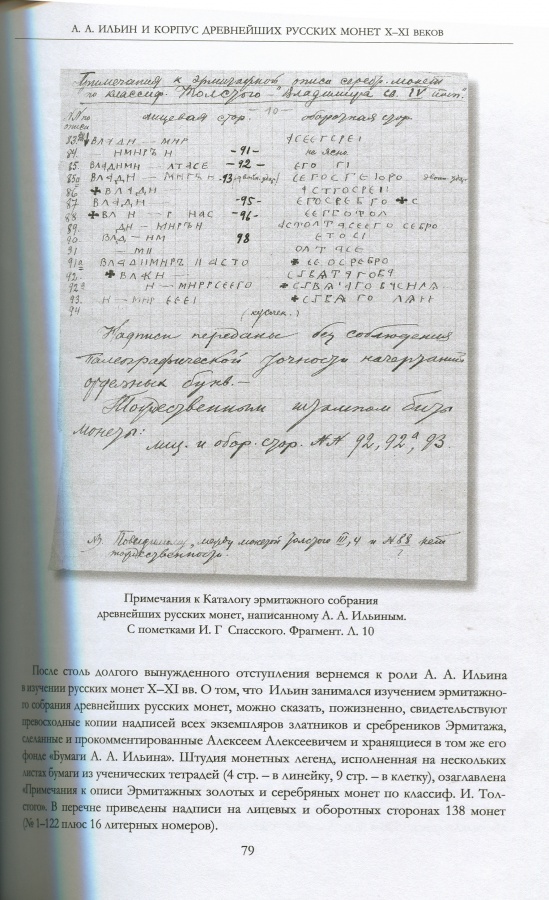 А. А. ИЛЬИН И КОРПУС ДРЕВНЕЙШИХ РУССКИХ МОНЕТ X–XI ВЕКОВ
Примечания к эрмитажной описи серебр. монет
по классиф. Толстого "Владимира" св. IV тип.
– 10 –
№ по описи лицевая стор. оборотная стор.
83 ВЛАДН — МНР
84. НМНРЪ Н –91– не ясно.
85. ВЛАДНМН – АТАСЕ –92– ЕГО Г І
85а ВЛАДН –
86 ✚ВЛАДН
87 ВЛАДН — –95–
88 ✚ВЛ Н – Р НАС –96–
89. ДН – МНРЪН
90. ВЛД – НМ 98 ЕТОСІ
91 – МІІ ОЛТАСЕ
91а ВЛАДНМНРЪ ІІ АСТО
92. ✚ВЛ
92а Н
93. Н – МНР ЕЕЕІ
94 (кусочек.)
Надписи переданы без соблюдения
палеографической точности начертаний
отдельных букв.–
Тождественным штампом биты
монеты:
лиц. и обор. стор. №№ 92, 92а, 93.
Повидимому, между монетой Толстого III, 4 и № 88 нет
тождественности.
?
Примечания к Каталогу эрмитажного собрания
древнейших русских монет, написанному А. А. Ильиным.
С пометками И. Г Спасского. Фрагмент. Л. 10
После столь долгого вынужденного отступления вернемся к роли А. А. Ильина
в изучении русских монет X–XI вв. О том, что Ильин занимался изучением эрмитажно-
го собрания древнейших русских монет, можно сказать, пожизненно, свидетельствуют
превосходные копии надписей всех экземпляров златников и сребреников Эрмитажа,
сделанные и прокомментированные Алексеем Алексеевичем и хранящиеся в том же его
фонде «Бумаги А. А. Ильина». Штудия монетных легенд, исполненная на нескольких
листах бумаги из ученических тетрадей (4 стр. – в линейку, 9 стр. – в клетку), озаглавлена
«Примечания к описи Эрмитажных золотых и серебряных монет по классиф. И. Тол-
стого». В перечне приведены надписи на лицевых и оборотных сторонах 138 монет
(№ 1–122 плюс 16 литерных номеров).
79